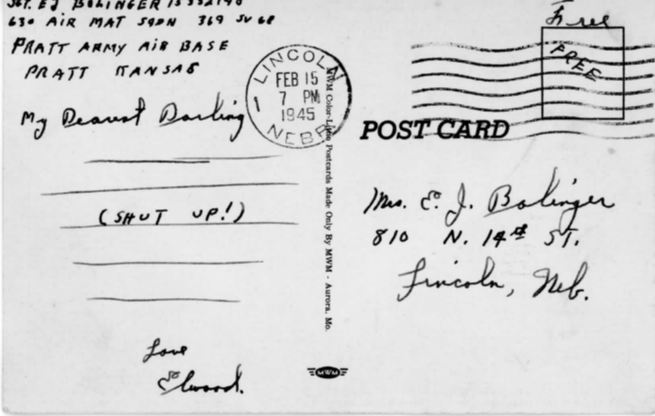 SGT. EJ BOLINGER 15332190
630 AIR MAT SQDN 369 SV GP
PRATT ARMY AIR BASE
PRATT KANSAS
My Dearest Darling
(SHUT UP!)
Love
Elwood.
LINCOLN
FEB 15
7 PM
1945
NEBR
1
MWM Color-Litho Postcards Made Only By MWM - Aurora, Mo.
MWM
Free
FREE
POST CARD
Mrs. E. J. Bolinger
810 N. 14th ST.
Lincoln, Neb.